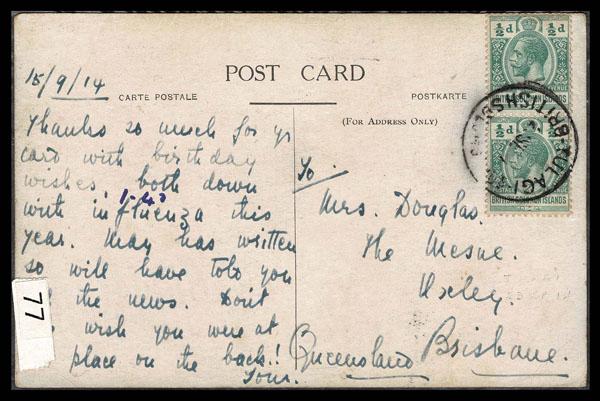 15/9/14
POST CARD
CARTE POSTALE
POSTKARTE
(For Address Only)
Thanks so much for yr
card with birthday
wishes, both down
with influenza this
year. May has written
so will have told you
the news. Don't
wish you were at
place on the back!
Your.
To.
Mrs. Douglas.
The
Oxley.
Brisbane.
Queensland
77
½d ½d
BRITISH SOLOMON ISLANDS
½d ½d
BRITISH SOLOMON ISLANDS
TULAGI
BRITISH